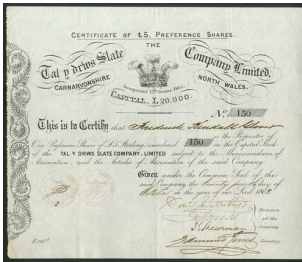 CERTIFICATE OF £5. PREFERENCE SHARES.
THE
Tal y drws Slate Company Limited.
CARNARVONSHIRE NORTH WALES.
Incorporated October, 186
CAPITAL, £20,000.
No. 150
This is to Certify that Frederick
is the Proprietor of
One Preference Share of £5 Sterling, numbered 150 in the Capital Stock
of the TAL Y DRWS SLATE COMPANY, LIMITED subject to the Memorandum of
Association and the Articles of Association of the said Company.
Given under the Common Seal of the
said Company the day of
October in the year of our Lord 186
Directors
of the
Company
Secretary
Entd.